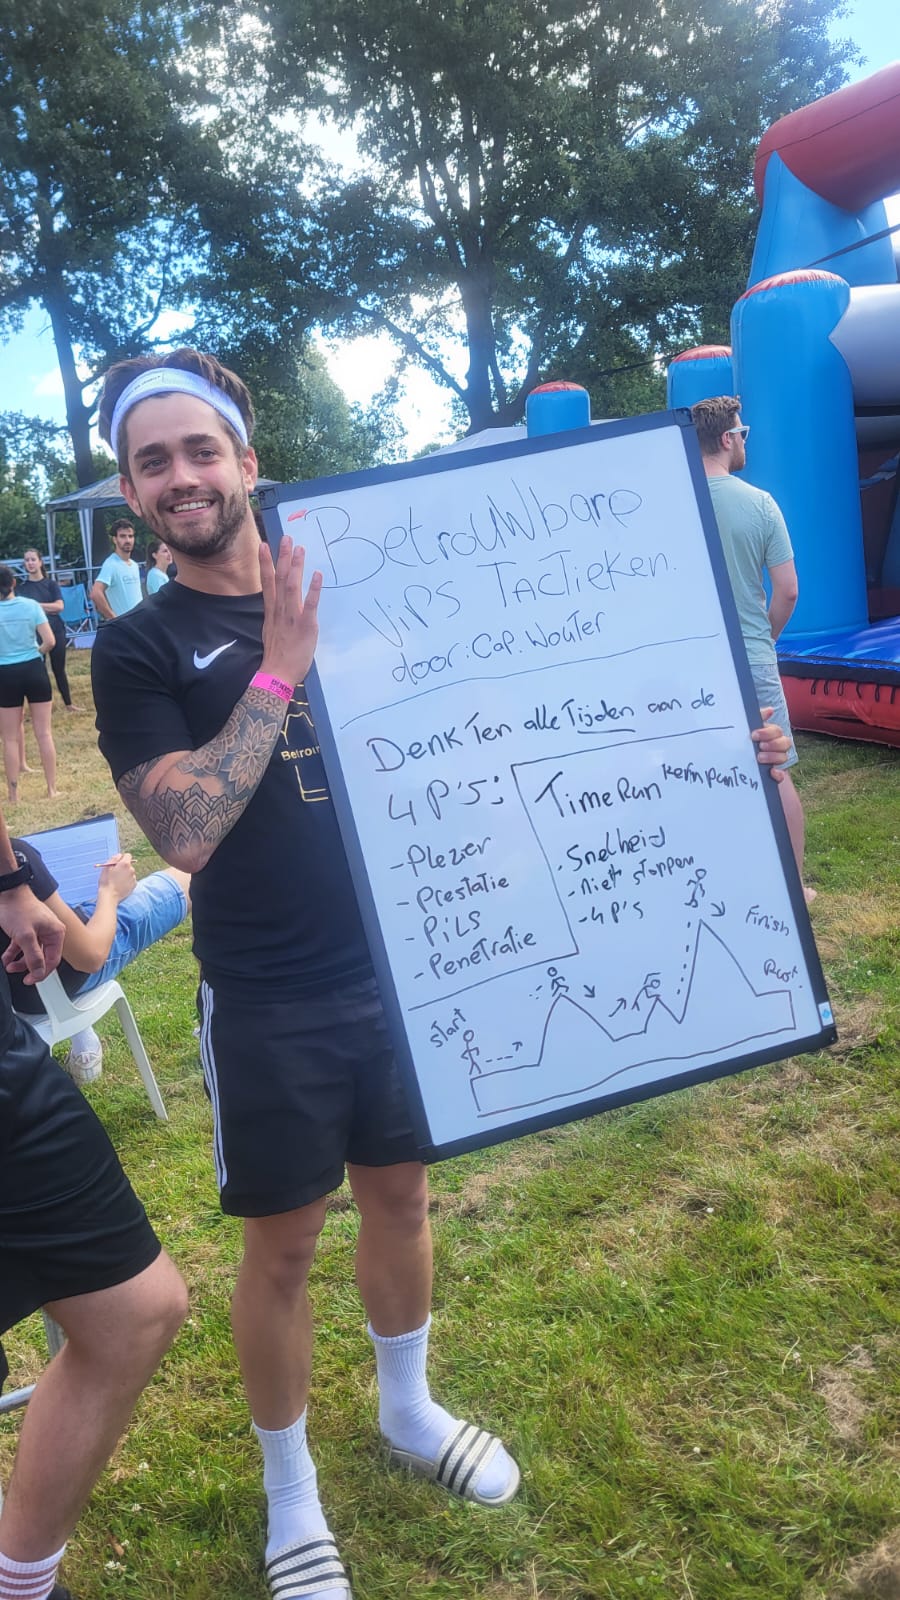 Betrouwbare
Vips Tactieken.
door: Cap. Wouter
Denk Ten alle Tijden aan de
4 P's:
- Plezier
- Prestatie
- PiLS
- Penetratie
Time Run kernpunten
- Snelheid
- niet stoppen
- 4 P's
Start
Finish